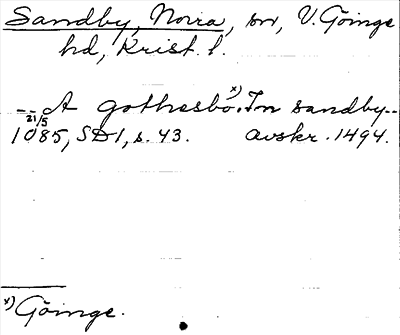 Sandby, Norra, sn, V. Göinge
hd, Krist. l.
-- A gothesbo x). In sandby --
21/5
1085, SD1, s. 43. avskr. 1494.
x) Göinge.